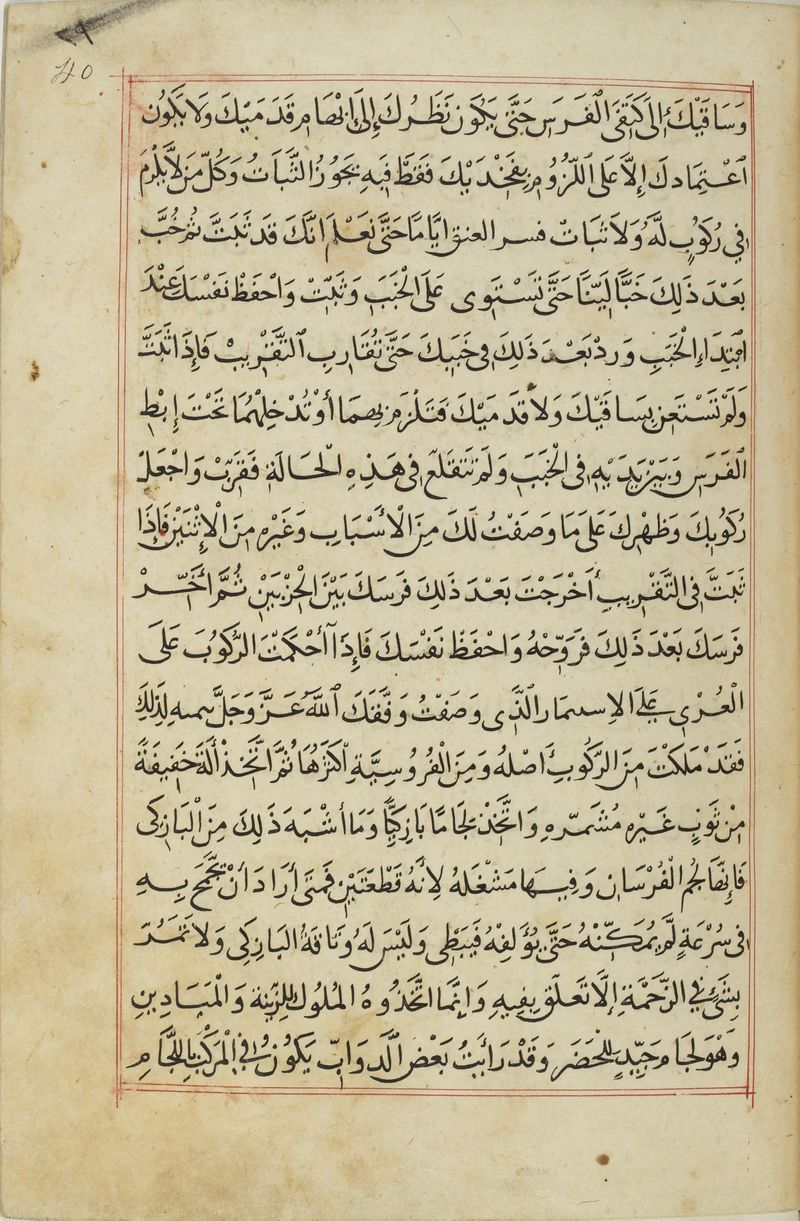 40
وَسَاقَيْكَ إِلَى كَتِفَىِ الْفَرَسِ حَتَّى يَكُونَ نَظَرُكَ إِلَى إِبْهَامِ قَدَمَيْكَ وَلَا يَكُونُ
اعْتِمَادكَ إِلَّا عَلَى اللُّزُومِ بِفَخْذَيْكَ فَقَطْ فَبِهِ يَجُوزُ الثَّبَاتُ وَكُلُّ مَنْ لَا يَلْزَمُ
فِي رُكُوبٍ لَهُ وَلَا ثَبَاتَ فسر العنق ايَّامًا حَتَّى تَعْلَمَ انَّكَ قَدْ ثَبَتَّ ثُمَّ خُبَّ
بَعْدَ ذَلِكَ خَبًّا لَيِّنًا حَتَّى تَسْتَوِى عَلَى الْخَبَبِ وَثَبِّتْ وَاحْفَظْ نَفْسَكَ عِنْدَ
ابْتِدَاءِ الْخَبَبِ وَرِدْ بَعْدَ ذَلِكَ فِى خَبَبِكَ حَتَّى تُقَارِبَ التَّقْرِيبْ فَإِذَا ثَبَتَّ
وَلَمْ تَسْتَعِنْ بِسَاقَيْكَ وَلَا قَدَمَيْكَ فَتَلْزَمَ بِهِمَا أَوْ تُدْخِلْهُمَا تَحْتَ إِبْطِ
الْفَرَسِ وَبَيْنَ يَدَيْهِ فِى الْخَبَبِ وَلَمْ تَتَقَلَّعْ فِى هَذِهِ الْحَالَةِ فَقَرِّبْ وَاجْعَلْ
رُكُوبَكَ وَظَهْرَكَ عَلَى مَا وَصَفْتُ لَكَ مِنَ الْأَسْبَابِ وَغَيْرِهِ مِنَ الْإِثْنَيْنِ فَإِذَا
ثَبَتَّ فِى التَّقْرِيبِ أَخْرَجْتَ بَعْدَ ذَلِكَ فَرَسَكَ بَيْنَ الْحِزْبَيْنِ ثُمَّ أَخِّرْ
فَرَسَكَ بَعْدَ ذَلِكَ فَرَوِّحْهُ وَاحْفَظْ نَفْسَكَ فَإِذَا أَحْكَمْتَ الرُّكُوبَ عَلَى
الْعُرْىِ عَلَى الَّذِى وَصَفْتُ وَفَّقَكَ اللَّهُ عَزَّ وَجَلَّ لِذَلِكَ
فَقَدْ مَلَكْتَ مِنَ الرُّكُوبِ أَصْلَهُ وَمِنَ الْفُرُوسِيَّةِ أَكْثَرَهَا ثُمَّ اتَّخِذْ آلَةً خَفِيفَةً
مِنْ ثَوْبٍ غَيْرِهِ مُشَمَّرِهِ وَاتَّخِذْ لِجَامًا بَازِكِيًّا وَمَا أَشْبَهَ ذَلِكَ مِنَ الْبَازِكَى
فَإِنَّهَا لُجُمُ الْفُرْسَانِ وَفِيهَا مَشْغَلَهُ لِأَنَّهُ قَطْعَتَيْنِ فَمَتَى أَرَادَ أَنْ يَجْمَحَ بِهِ
فِى سُرْعَةٍ لَمْ يُمَكِّنْهُ حَتَّى يُؤَلِّفْهُ فَيَبْطِى وَلَيْسَ لَهُ وَثَاقَةُ الْبَازِكِى وَلَا تَمُدَّ
بِشَىْءٍ فِى الزَّحْمَةِ إِلَّا تَعَلَّقَ بِفِيهِ وَإِنَّمَا اتَّخَذُوهُ الْمُلُوكُ لِلزِّينَةِ وَالْمَيَادِينِ
وَهُوَ لِجَامٌ جَيِّدٍ لِلْحَضَرِ وَقَدْ رَأَيْتُ بَعْضَ الدَّوَابِّ يَكُونُ فِى الْمَرْكَبِ بِاللِّجَامِ